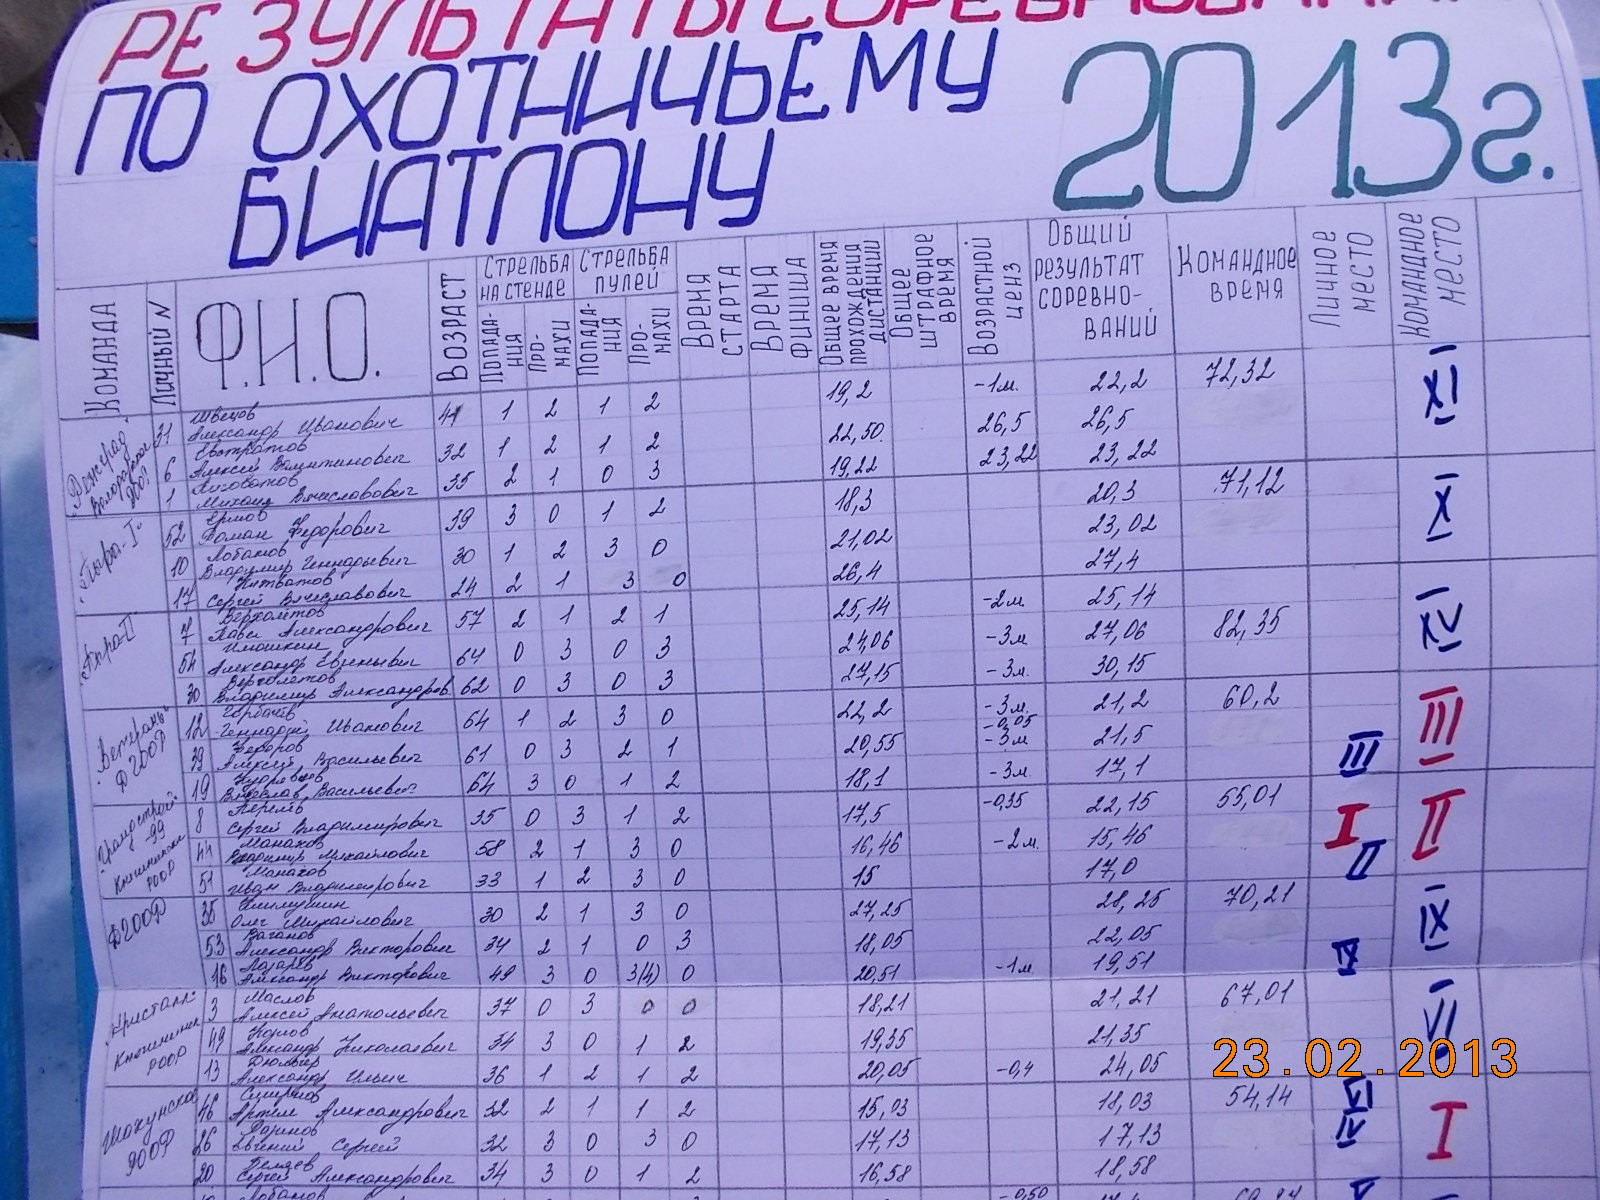 РЕЗУЛЬТАТЫ СОРЕВНОВАНИЙ
ПО ОХОТНИЧЬЕМУ
БИАТЛОНУ
2013г.
КОМАНДА
Личный N
Ф.И.О.
ВОЗРАСТ
СТРЕЛЬБА НА СТЕНДЕ
ПОПАДА-НИЯ
ПРО-МАХИ
СТРЕЛЬБА ПУЛЕЙ
ПОПАДА-НИЯ
ПРО-МАХИ
ВРЕМЯ СТАРТА
ВРЕМЯ ФИНИША
ОБЩЕЕ ВРЕМЯ ПРОХОЖДЕНИЯ ДИСТАНЦИИ
ОБЩЕЕ ШТРАФНОЕ ВРЕМЯ
ВОЗРАСТНОЙ ЦЕНЗ
ОБЩИЙ РЕЗУЛЬТАТ СОРЕВНО-ВАНИЙ
КОМАНДНОЕ ВРЕМЯ
ЛИЧНОЕ МЕСТО
КОМАНДНОЕ МЕСТО
31 Швецов
Александр Иванович 41 1 2 1 2 19,2 -1м. 22,2 72,32 XI
6 Евстратов
Алексей Валентинович 32 1 2 1 2 22,50 26,5 26,5
1 Михаил Вячеславович 35 2 1 0 3 19,22 23,22 23,22
52
Роман Федорович 39 3 0 1 2 18,3 20,3 71,12 X
10 Лобанов
Владимир Геннадьевич 30 1 2 3 0 21,02 23,02
17
Сергей Вячеславович 24 2 1 3 0 26,4 27,4
7
Павел Александрович 57 2 1 2 1 25,14 -2м 25,14 82,35 XV
54 Илюшкин
Александр Евгеньевич 64 0 3 0 3 24,06 -3м 27,06
30
Владимир Александров. 62 0 3 0 3 27,15 -3м. 30,15
"Ветераны" ДГООФ
12 Горбачёв
Геннадий Иванович 64 1 2 3 0 22,2 -3м. 21,2 60,2 III
39 Федоров
Алексей Васильевич 61 0 3 2 1 20,55 -0,05 -3м 21,5
19 Кудрявцев
Вячеслав Васильевич 64 3 0 1 2 18,1 -3м. 17,1 III
8
Сергей Владимирович 35 0 3 1 2 17,5 -0,35 22,15 55,01 II
44 Монахов
Владимир Михайлович 58 2 1 3 0 16,46 -2м. 15,46 I
51 Монахов
Иван Владимирович 33 1 2 3 0 15 17,0 II
ДГООФ
35 Климушин
Олег Михайлович 30 2 1 3 0 27,25 28,25 70,21 IX
53 Ваганов
Александр Викторович 34 2 1 0 3 18,05 22,05
16 Лазарев
Александр Викторович 49 3 0 3(4) 0 20,51 -1м 19,51 IX
Кристалл
Княгининск РООР
3 Маслов
Алексей Анатольевич 37 0 3 0 0 18,21 21,21 67,01 VI
49
Александр Николаевич 34 3 0 1 2 19,35 21,35
13
Александр Ильич 36 1 2 1 2 20,05 -0,4 24,05
Шахунское РООР
46 Смирнов
Артем Александрович 32 2 1 1 2 15,03 18,03 54,14 VI I
26
Евгений Сергей 32 3 0 3 0 17,13 17,13 IV
20 Беляев
Сергей Александрович 34 3 0 1 2 16,58 18,58
Лобанов -0,50
23.02.2013